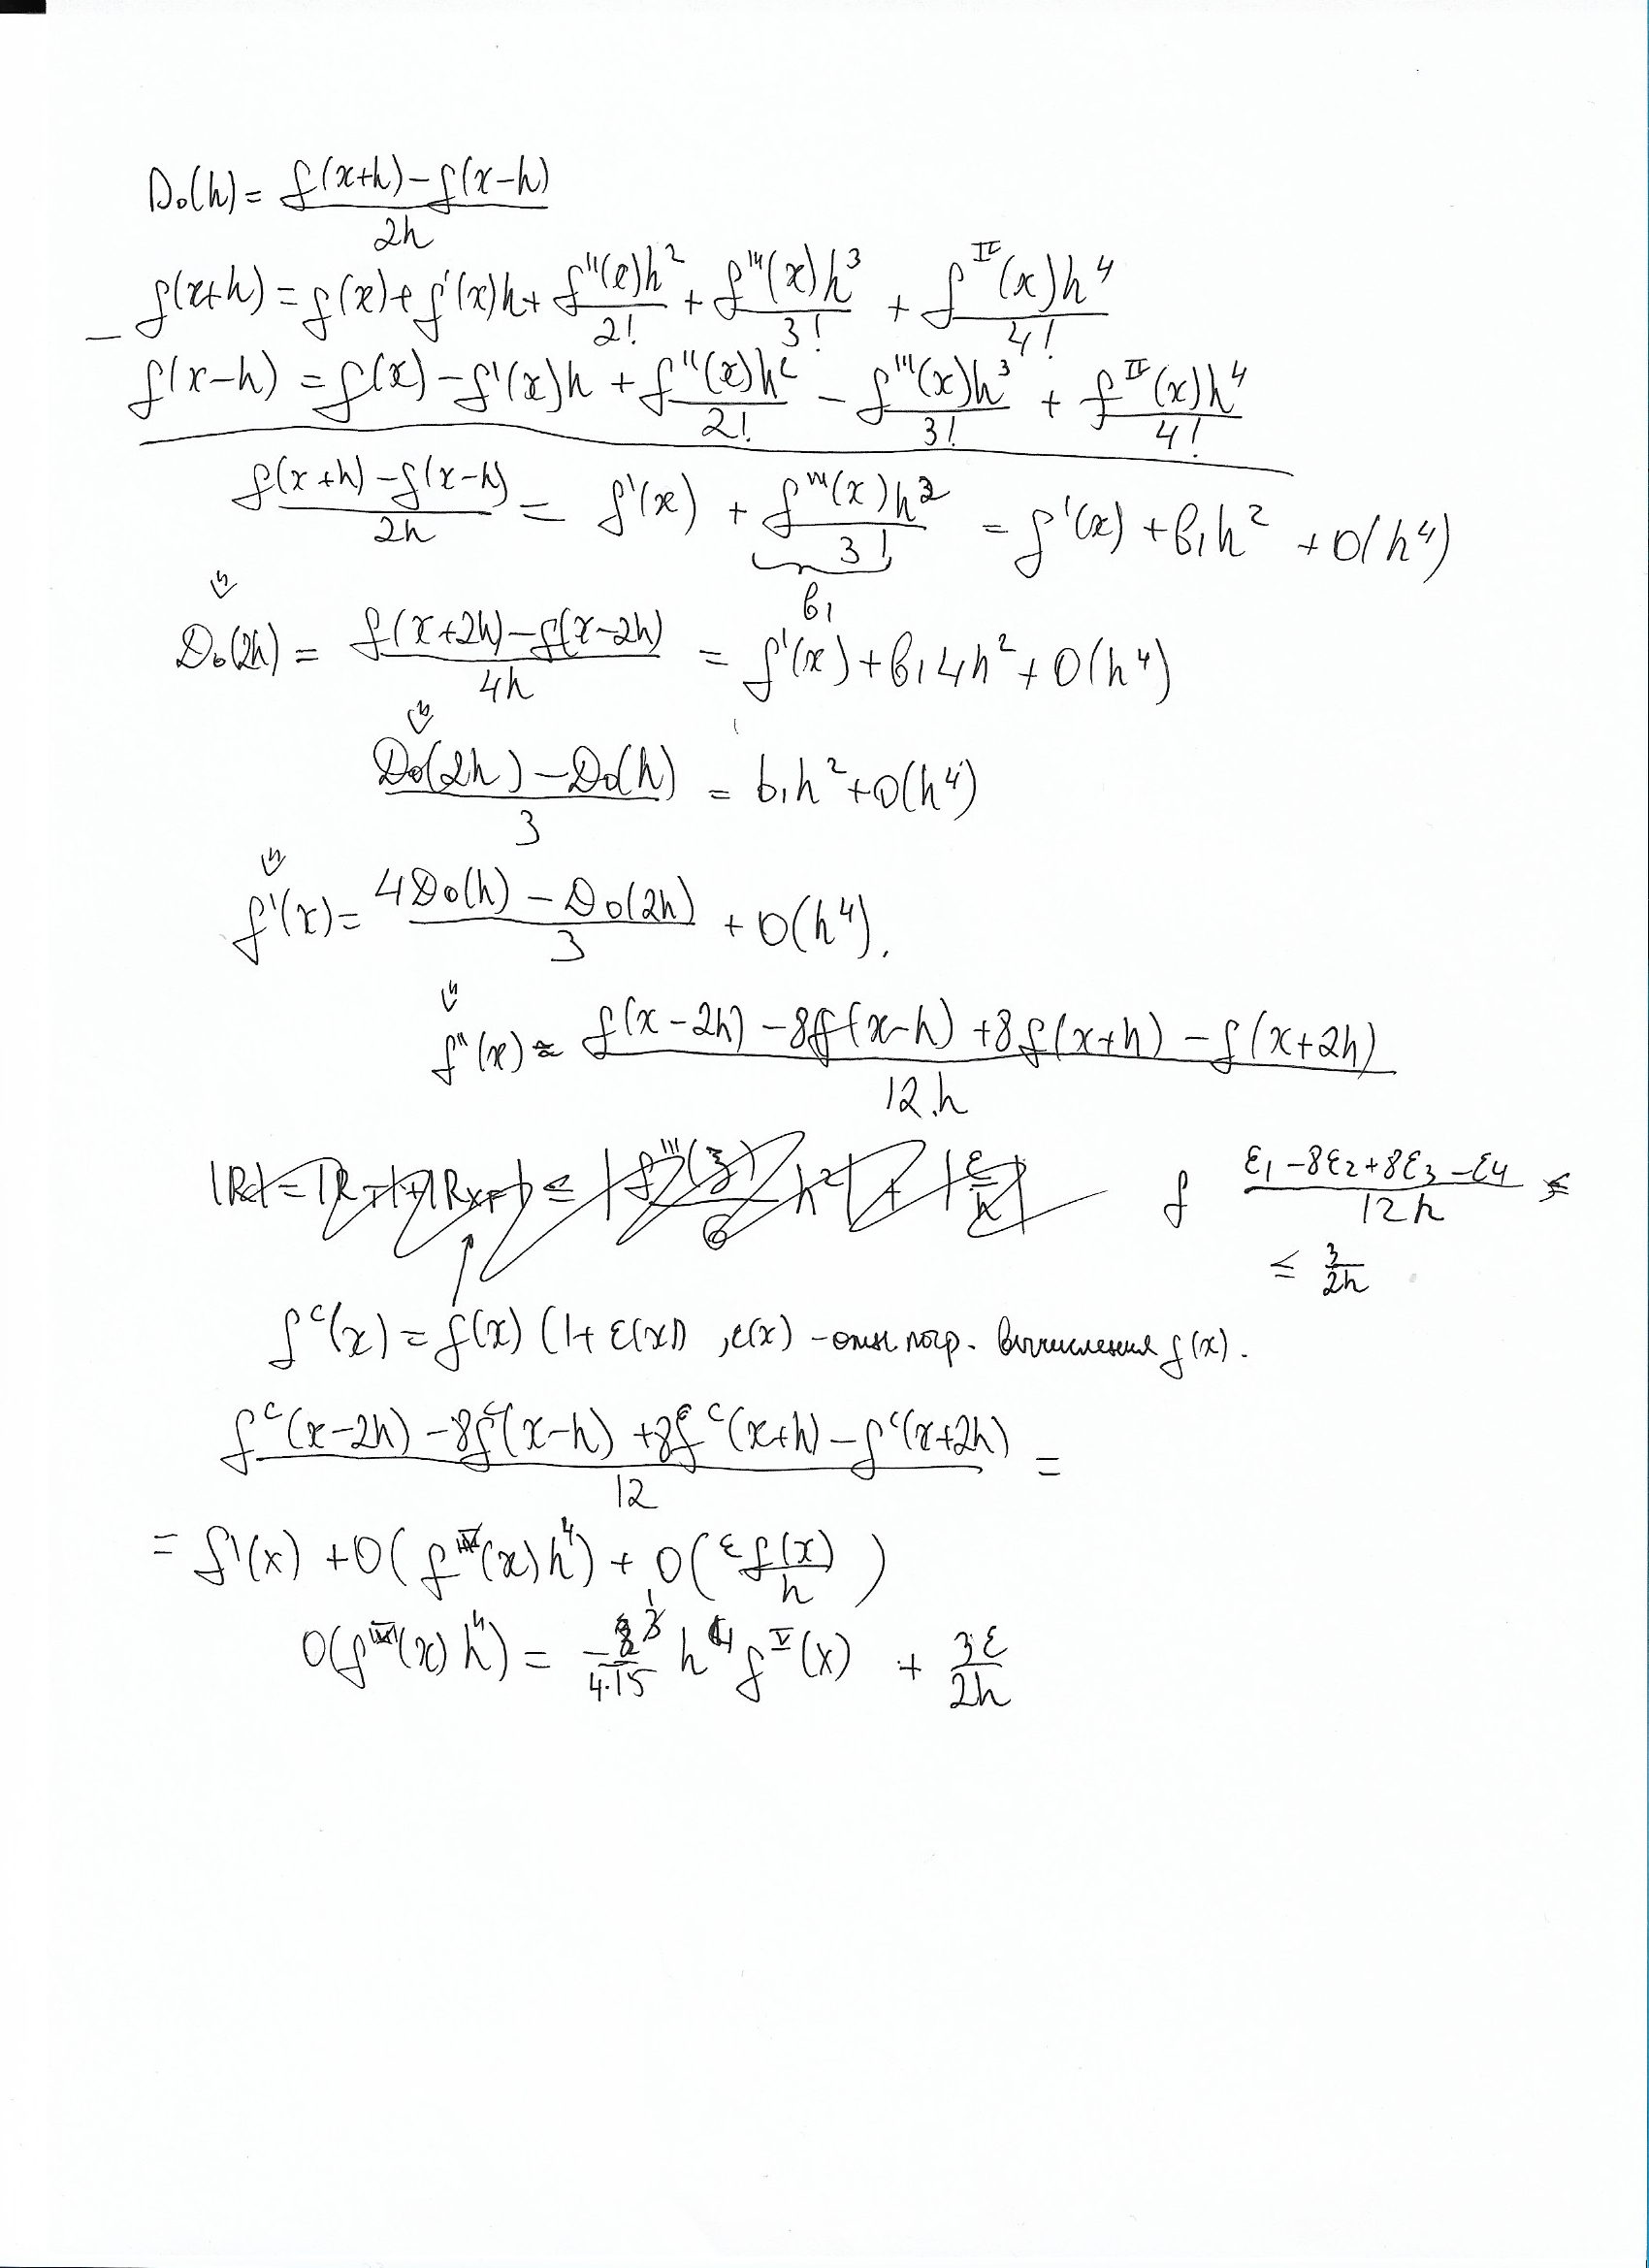 D₀(h) = (f(x+h) − f(x−h)) / 2h
− f(x+h) = f(x) + f'(x)h + f''(x)h² / 2! + f'''(x)h³ / 3! + f^IV(x)h⁴ / 4!
f(x−h) = f(x) − f'(x)h + f''(x)h² / 2! − f'''(x)h³ / 3! + f^IV(x)h⁴ / 4!
(f(x+h) − f(x−h)) / 2h = f'(x) + f'''(x)h² / 3! = f'(x) + b₁h² + O(h⁴)
b₁
⇓
D₀(2h) = (f(x+2h) − f(x−2h)) / 4h = f'(x) + b₁4h² + O(h⁴)
⇓
(D₀(2h) − D₀(h)) / 3 = b₁h² + O(h⁴)
⇓
f'(x) = (4D₀(h) − D₀(2h)) / 3 + O(h⁴).
⇓
f''(x) ≈ (f(x−2h) − 8f(x−h) + 8f(x+h) − f(x+2h)) / 12.h
f (ε₁ − 8ε₂ + 8ε₃ − ε₄) / 12h ≤
≤ 3 / 2h
f^c(x) = f(x) (1 + ε(x)), ε(x) − отн. погр. вычисления f(x).
(f^c(x−2h) − 8f^c(x−h) + 8f^c(x+h) − f^c(x+2h)) / 12 =
= f'(x) + O(f (x)h⁴) + O(εf(x) / h)
O(f (x)h⁴) = / 4·15 h⁴ f^V(x) + 3ε / 2h